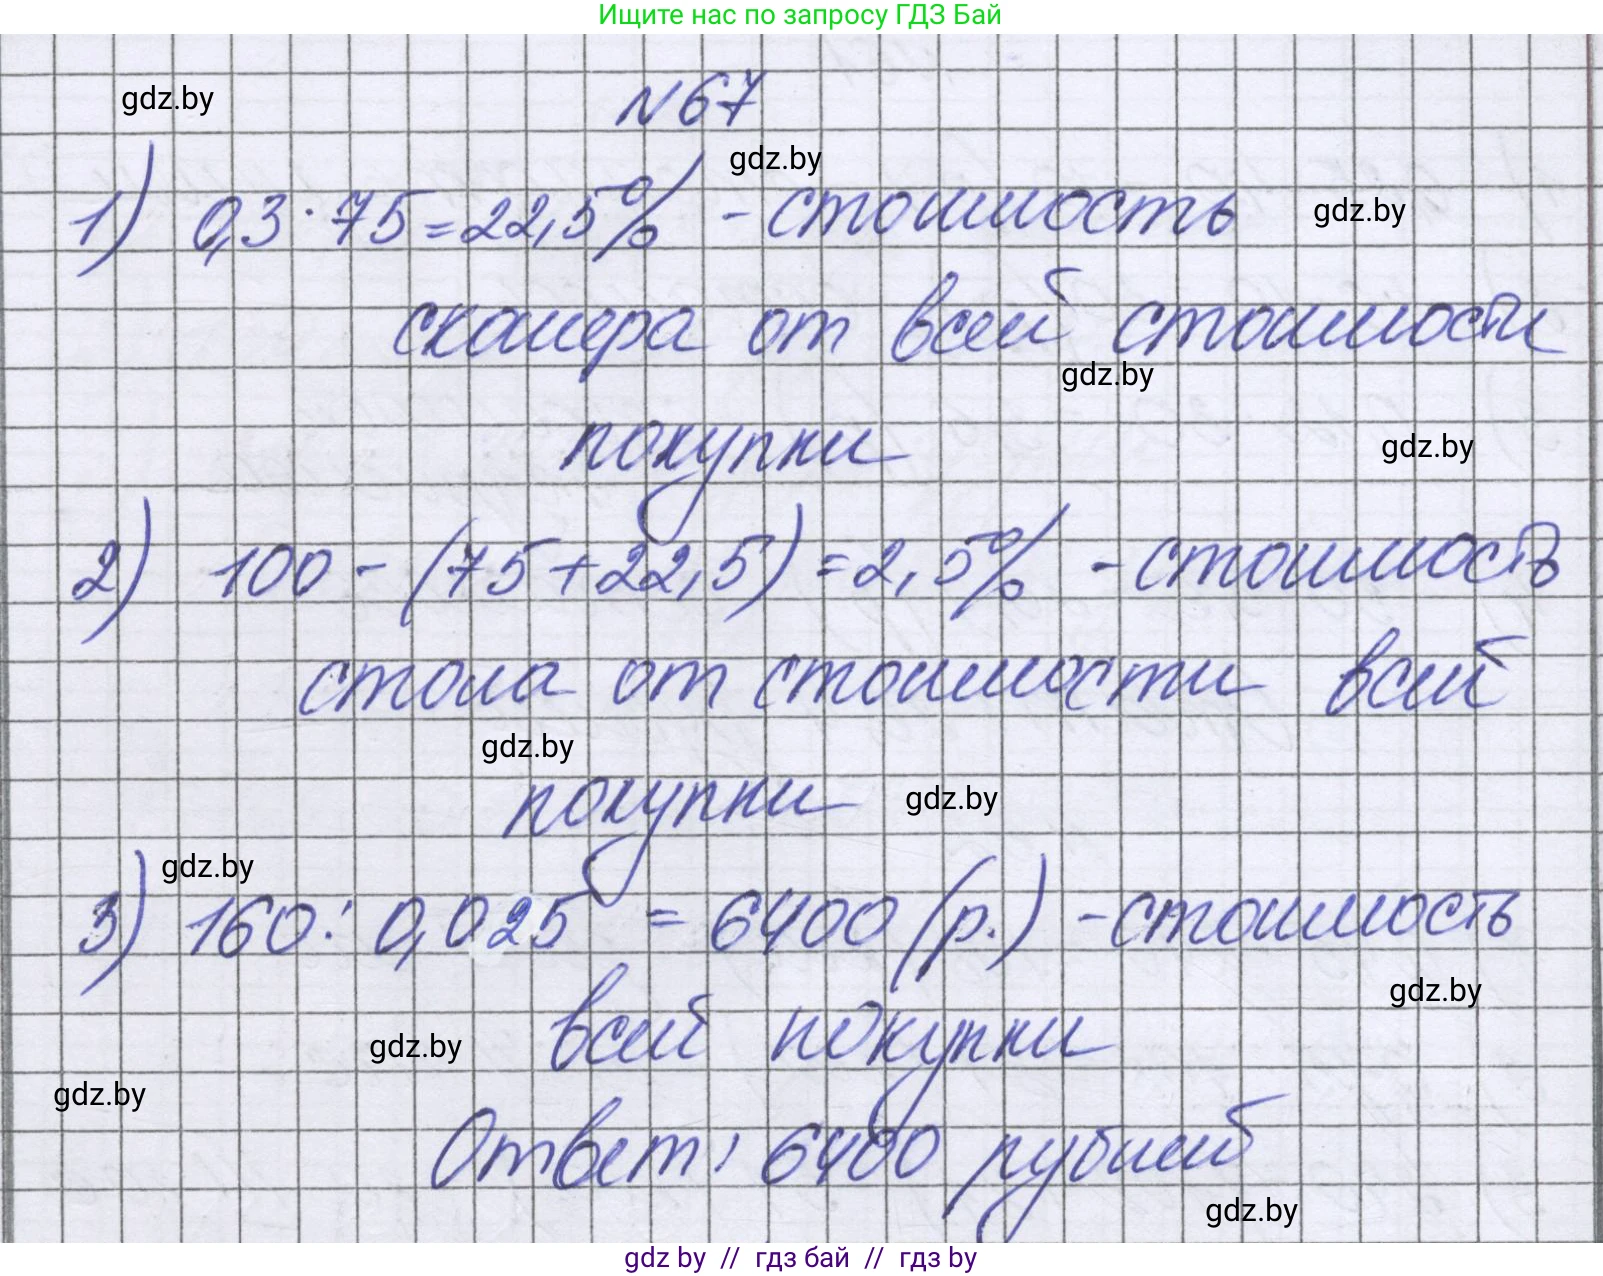 Ищите нас по запросу ГДЗ Бай
№67
gdz.by
gdz.by
1) 0,3·75=22,5% - стоимость
gdz.by
сканера от всей стоимости
gdz.by
покупки
gdz.by
2) 100-(75+22,5)=2,5% - стоимость
стола от стоимости всей
gdz.by
покупки
gdz.by
gdz.by
3) 160:0,025 = 6400 (р.) - стоимость
gdz.by
всей покупки
gdz.by
gdz.by
Ответ: 6400 рублей
gdz.by
gdz by // гдз бай // гдз by